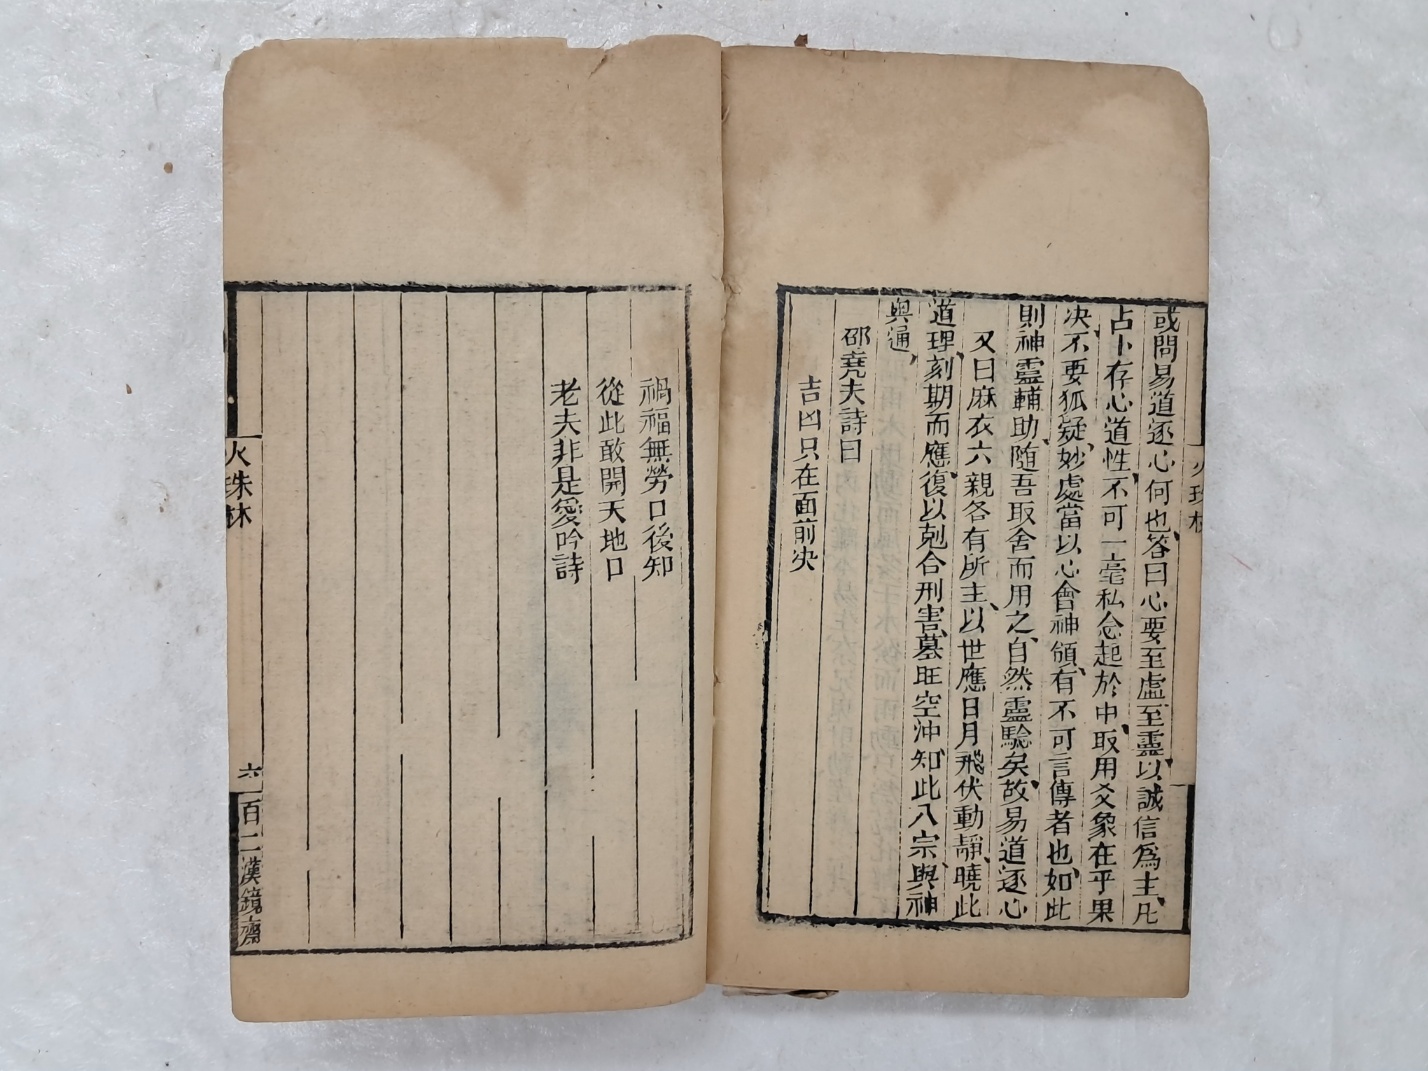 或問易道逐心何也答曰心要至虛至靈以誠信為主凡
占卜存心道性不可一毫私念起於中取用爻象在乎果
决不要狐疑妙處當以心會神領有不可言傳者也如此
則神靈輔助隨吾取舍而用之自然靈驗矣故易道逐心
又曰麻衣六親各有所主以世應日月飛伏動靜曉此
道理刻期而應復以剋合刑害墓旺空沖知此八宗與神
與通
邵堯夫詩曰
吉凶只在面前决
禍福無勞口後知
從此敢開天地口
老夫非是愛吟詩
火珠林
六
百二漢鏡齋